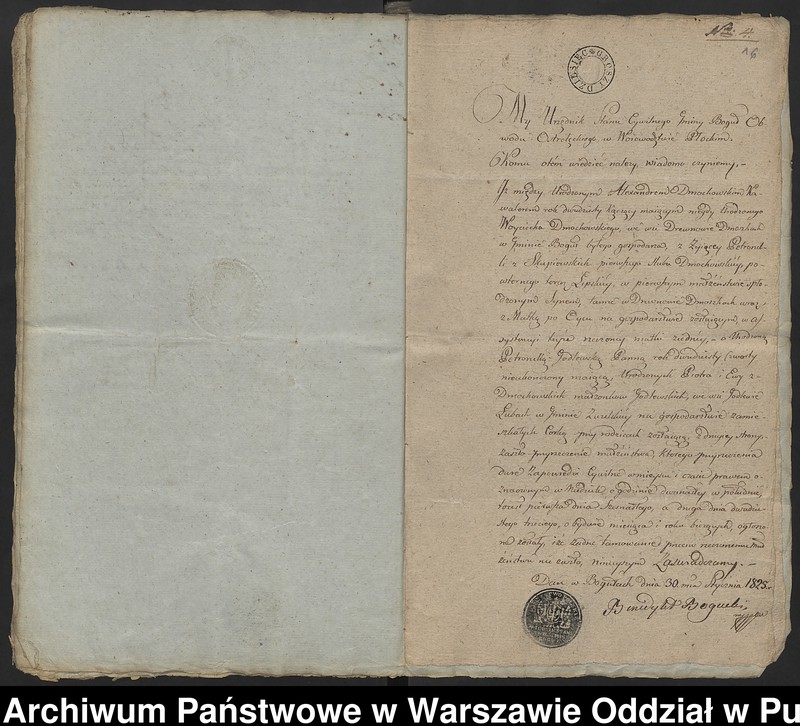 Nro 4.
16
DZIESIĘC GROSZY
My Urzędnik Stanu Cywilnego Gminy Boguł Ob-
wodu Ostrołęckiego, w Woiewodztwie Płockim.
Komu otém wiedzieć należy, wiadomo czyniemy, -
Iż między Urodzonym Alexandrem Dmochowskim Ka-
walerem rok dwudziesty trzeci maiącym niegdy Urodzonego
Woyciecha Dmochowskiego, we wsi Drewnowie Dmoszkach
w Gminie Boguł byłego gospodarza, z żyiącey Petronel-
li z pierwszego ślubu Dmochowskiey, po-
wtornego teraz Lipskiey, w pierwszym małżeństwie spło-
dzonym Synem, tamże w Drewnowie Dmoszkach wraz
z Matką po Oycu na gospodarstwie zostaiącym, w as-
systencyi teyże matki - a Urodzoną
Petronellą Jodłowską Panną rok dwudziesty czwarty
nieukończony maiącą, Urodzonych Piotra i Ewy z
Dmochowskich małżonków Jodłowskich, we wsi
w Gminie na gospodarstwie zamie-
szkałych Corką przy rodzicach zostaiącą z drugiey strony,
zaszło przyrzeczenie małżeństwa, którego przyrzeczenia
dwie Zapowiedzi Cywilne w mieyscu i czasie prawem o-
znaczonym w Niedziele o godzinie dwunastey w południe,
to iest pierwsza dnia Szesnastego, a druga dnia dwudzie-
stego trzeciego, obydwie miesiąca i roku bieżących, ogłoszo-
ne zostały, i że żadne tamowanie przeciw rzeczonemu mał-
żeństwu nie zaszło, ninieyszym Zaświadczamy. -
Dan w Bogutach dnia 30. mca Stycznia 1825.
Benedykt Bogucki
Archiwum Państwowe w Warszawie Oddział w Pu